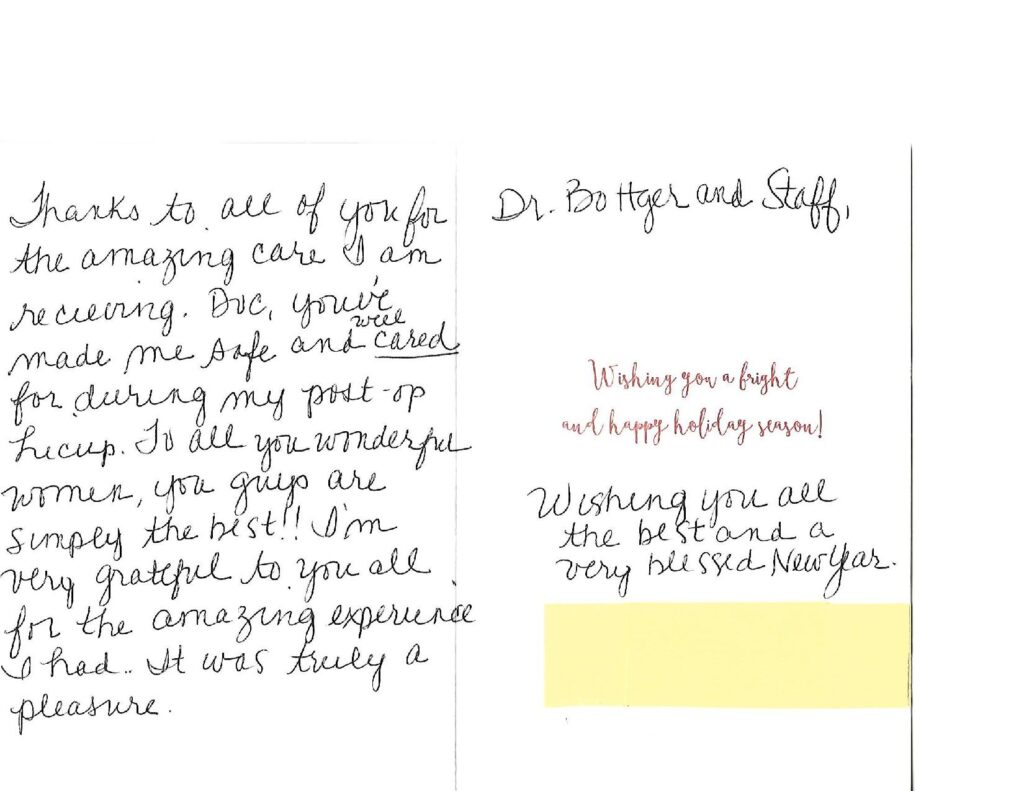 Thanks to all of you for
the amazing care I am
recieving. Doc, you've
made me safe and well cared
for during my post-op
hicup. To all you wonderful
women, you guys are
simply the best!! I'm
very grateful to you all
for the amazing experience
I had.. It was truly a
pleasure.
Dr. Bottger and Staff,
Wishing you a bright
and happy holiday season!
Wishing you all
the best and a
very blessed New Year.